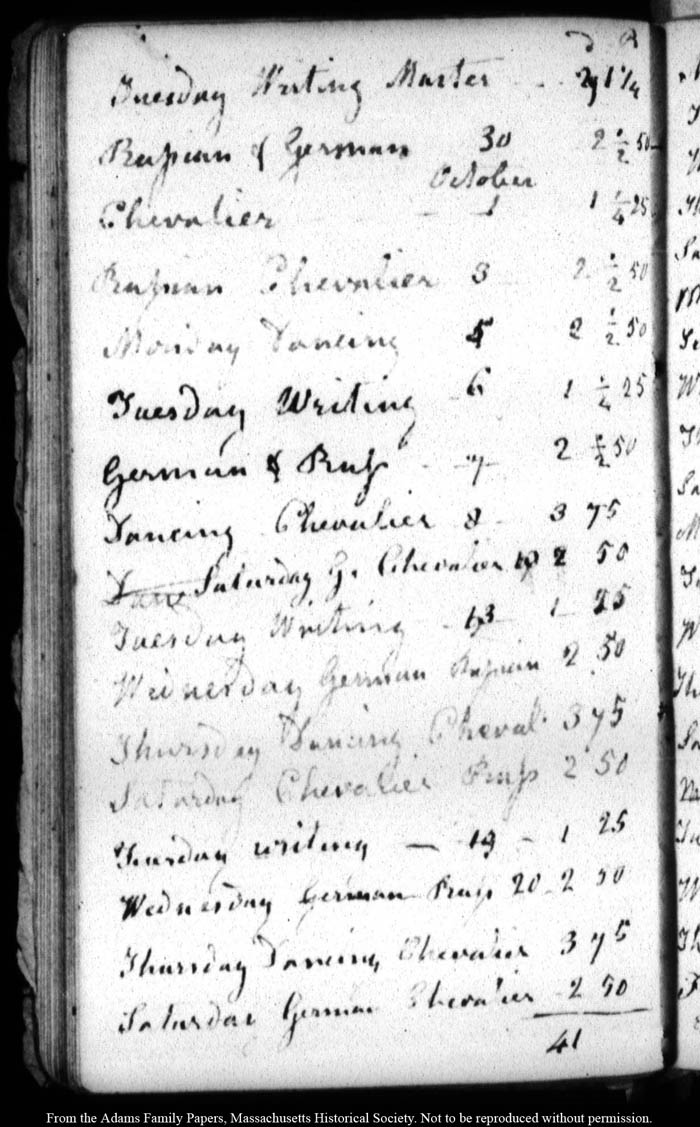 D R
Tuesday Writing Master - 29 1 1/4
Rupian & German 30 2 1/2 50
October
Chevalier - 1 1 1/4 25
Rupian Chevalier 3 2 1/2 50
Monday Dancing 5 2 1/2 50
Tuesday Writing - 6 1 1/4 25
German & Rup - 7 2 1/2 50
Dancing Chevalier 8 - 3 75
Saturday G. Chevalier 10 2 50
Tuesday Writing - 13 - 1 25
Wednesday German Rupian 2 50
Thursday Dancing Cheval 3 75
Saturday Chevalier Rup 2 50
Tuesday writing — 19 - 1 25
Wednesday German Rup 20 - 2 50
Thursday Dancing Chevalier 3 75
Saturday German Chevalier - 2 50
41
From the Adams Family Papers, Massachusetts Historical Society. Not to be reproduced without permission.